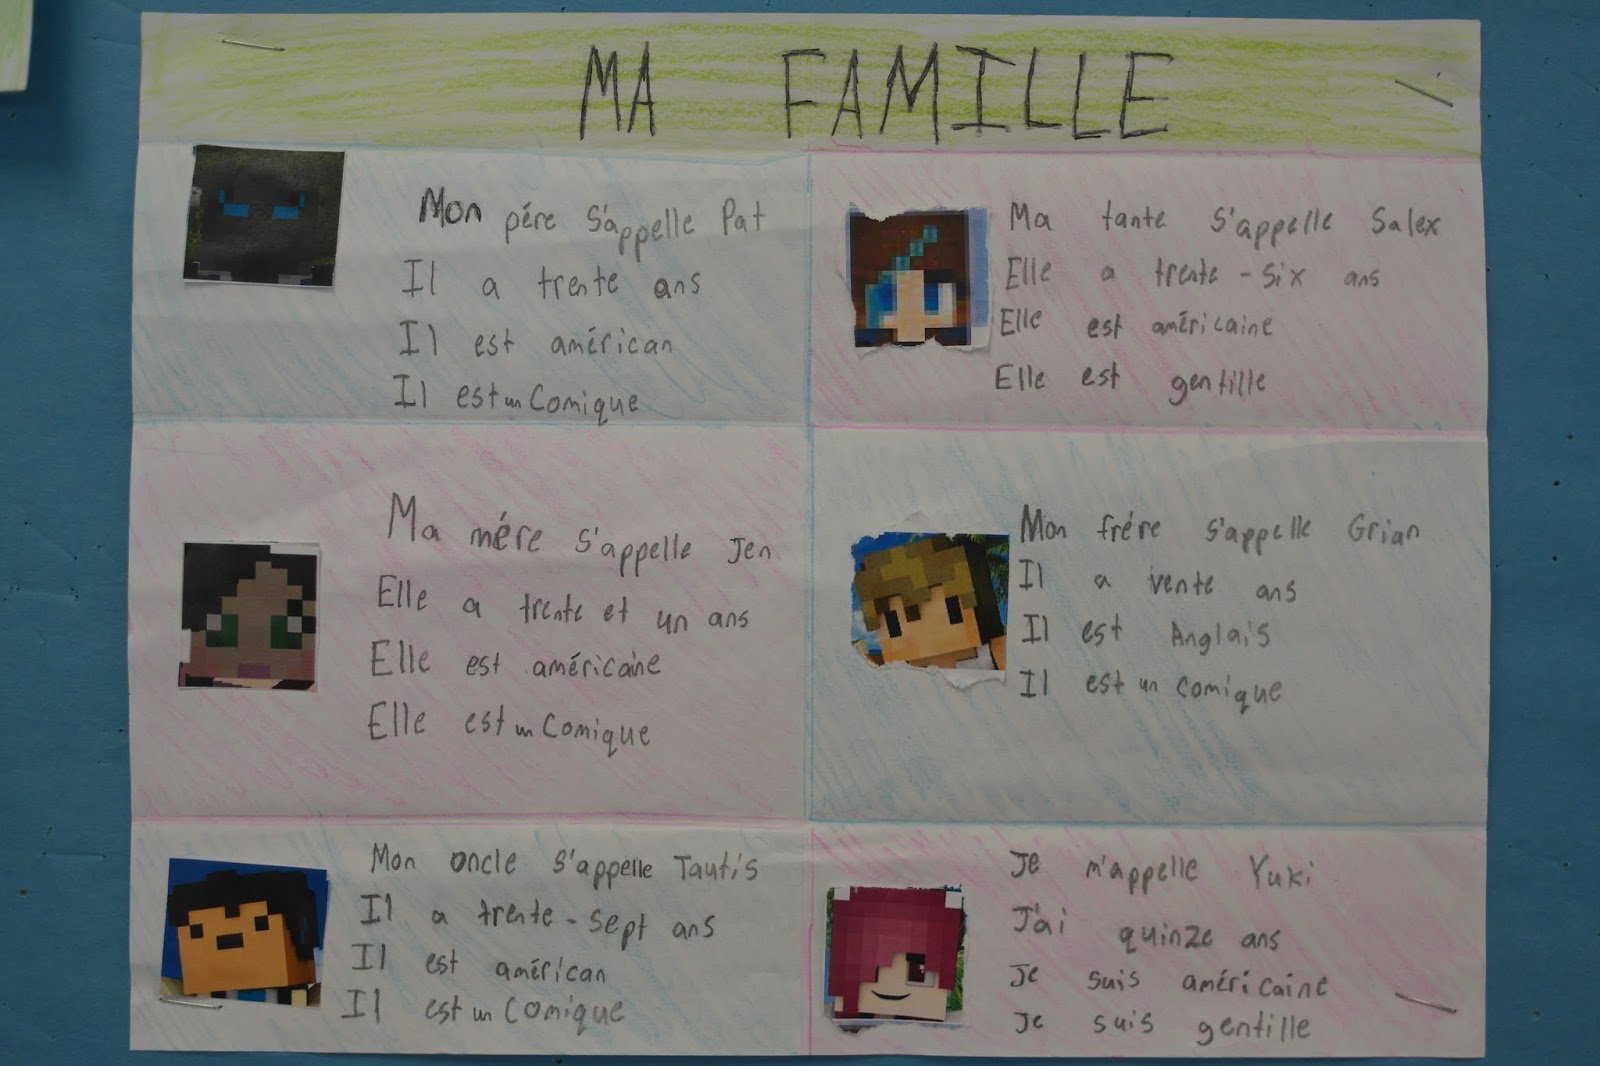 MA FAMILLE
Mon pére s'appelle Pat
Il a trente ans
Il est américan
Il est un Comique
Ma tante s'appelle Salex
Elle a trente-six ans
Elle est américaine
Elle est gentille
Ma mére s'appelle Jen
Elle a trente et un ans
Elle est américaine
Elle est un Comique
Mon frére s'appelle Grian
Il a vente ans
Il est Anglais
Il est un comique
Mon oncle s'appelle Tautis
Il a trente-sept ans
Il est américan
Il est un Comique
Je m'appelle Yuki
J'ai quinze ans
Je suis américaine
Je suis gentille